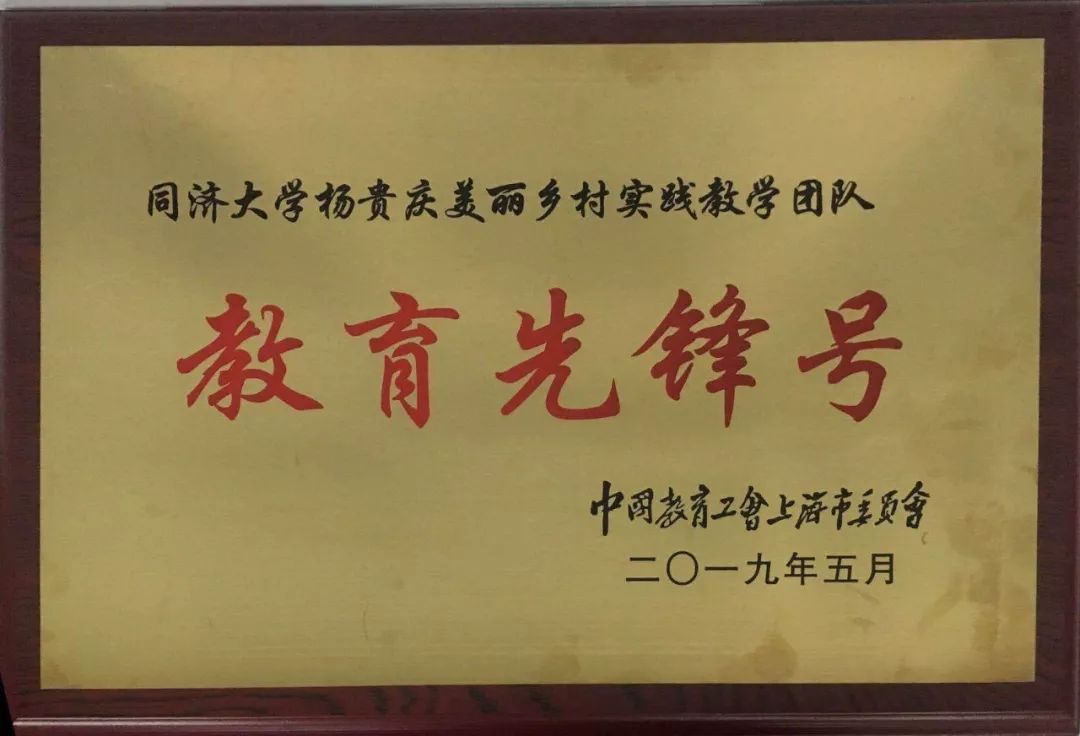 同济大学杨贵庆美丽乡村实践教学团队
教育先锋号
中國教育工會上海市委员會
二〇一九年五月